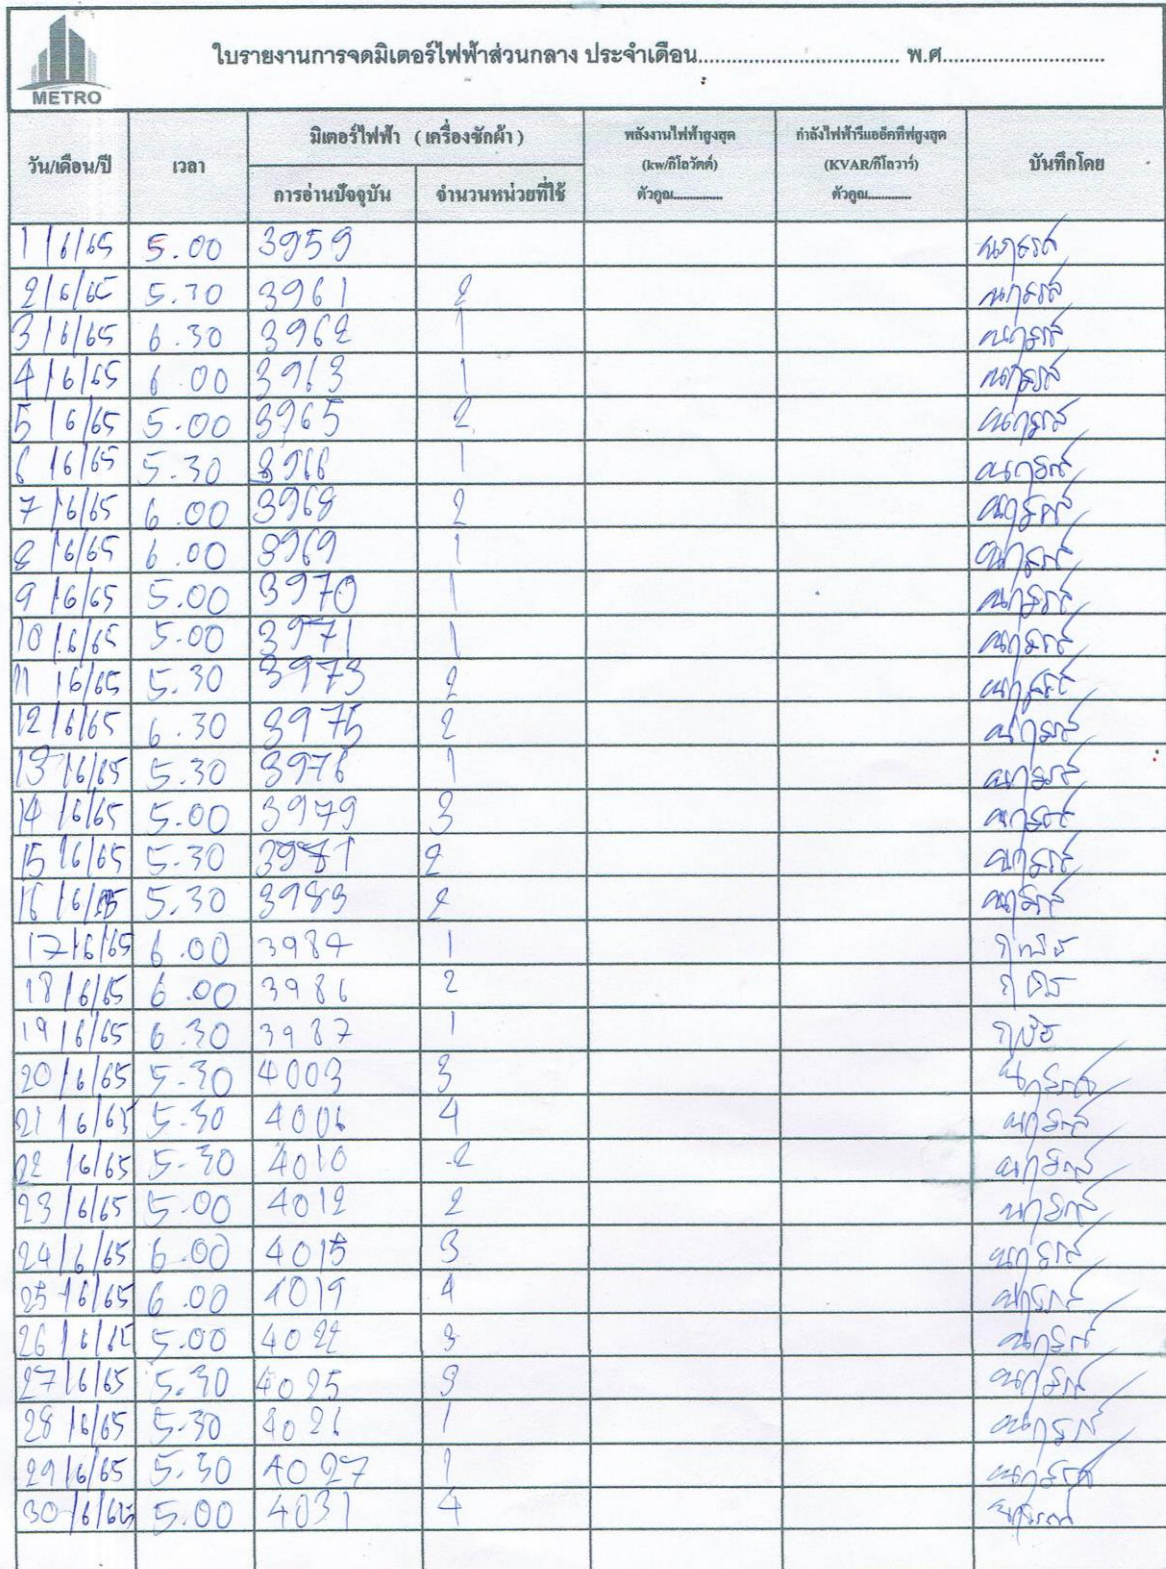 METRO
ใบรายงานการจดมิเตอร์ไฟฟ้าส่วนกลาง ประจำเดือน................................... พ.ศ............................
วัน/เดือน/ปี เวลา มิเตอร์ไฟฟ้า ( เครื่องซักผ้า ) พลังงานไฟฟ้าสูงสุด กำลังไฟฟ้ารีแอย็คทีฟสูงสุด บันทึกโดย
(kw/กิโลวัตต์) (KVAR/กิโลวาร์)
การอ่านปัจจุบัน จำนวนหน่วยที่ใช้ ตัวคูณ.............. ตัวคูณ...........
1/6/65 5.00 3959
2/6/65 5.30 3961 2
3/6/65 6.30 3962 1
4/6/65 6.00 3963 1
5/6/65 5.00 3965 2
6/6/65 5.30 3966 1
7/6/65 6.00 3968 2
8/6/65 6.00 3969 1
9/6/65 5.00 3970 1
10/6/65 5.00 3971 1
11/6/65 5.30 3973 2
12/6/65 6.30 3975 2
13/6/65 5.30 3976 1
14/6/65 5.00 3979 3
15/6/65 5.30 3981 2
16/6/65 5.30 3983 2
17/6/65 6.00 3984 1
18/6/65 6.00 3986 2
19/6/65 6.30 3987 1
20/6/65 5.30 4003 3
21/6/65 5.30 4006 4
22/6/65 5.30 4010 2
23/6/65 5.00 4012 2
24/6/65 6.00 4015 3
25/6/65 6.00 4019 4
26/6/65 5.00 4022 3
27/6/65 5.30 4025 3
28/6/65 5.30 4026 1
29/6/65 5.30 4027 1
30/6/65 5.00 4031 4